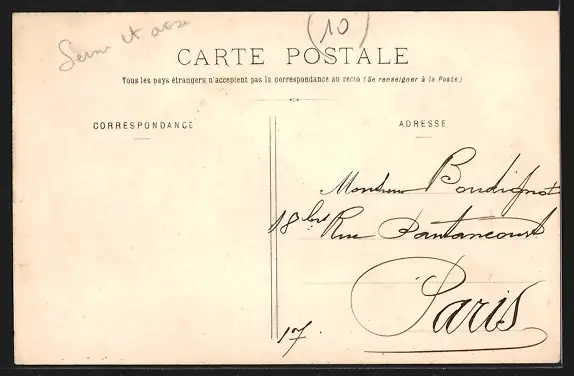 Seine et oise
(10)
CARTE POSTALE
Tous les pays étrangers n'acceptent pas la correspondance au recto (Se renseigner à la Poste)
CORRESPONDANCE
ADRESSE
Monsieur Boudignot
18 bis Rue Dautancourt
Paris
17